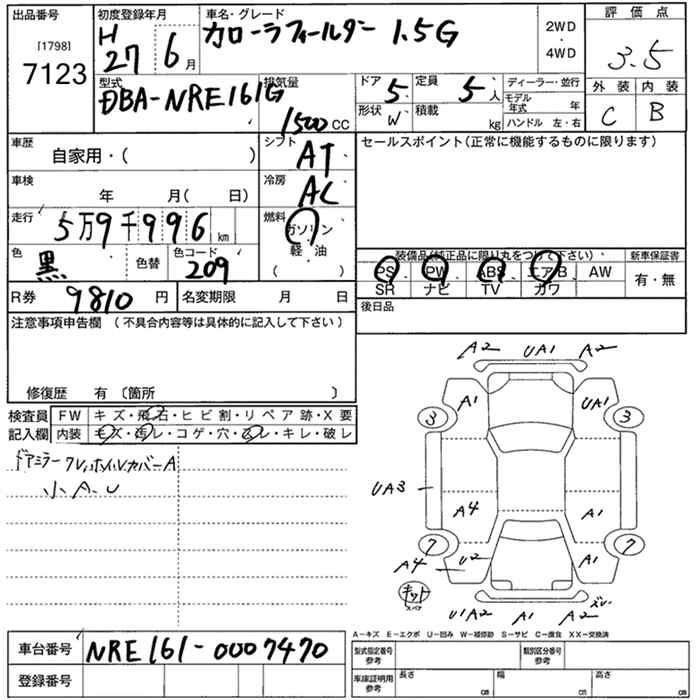 出品番号
[1798]
7123
初度登録年月
H 27 6月
車名・グレード
カローラフィールダー 1.5G
2WD
・
4WD
評価点
3.5
外装 内装
C B
型式
DBA-NRE161G
排気量
1500 CC
ドア 5
定員 5人
形状 W
積載 kg
ディーラー・並行
モデル年式 年
ハンドル 左・右
車歴
自家用・( )
シフト
AT
車検
年 月( 日)
冷房
AC
走行
5万9千996km
燃料
ガソリン
軽・油
( )
色
黒
色替
色コード
209
R券 9810円
名変期限 月 日
セールスポイント(正常に機能するものに限ります)
装備品(純正品に限り丸をつけて下さい)
新車保証書
PS PW ABS エアB AW
有・無
SR ナビ TV カワ
後日品
注意事項申告欄 (不具合内容等は具体的に記入して下さい)
修復歴 有 〔箇所 〕
検査員
記入欄
FW キズ・飛石・ヒビ割・リペア跡・X要
内装 キズ・汚レ・コゲ・穴・スレ・キレ・破レ
ドアミラー フルホイルカバーA
小A・U
A2 UA1 A2
A1 UA1
3 3
UA3
A4 A1
7 7
A4 U2 A1
キット
スペア
U1A2 A1 A2
A−キズ E−エクボ U−凹み W−補修跡 S−サビ C−腐食 XX−交換済
車台番号 NRE161-0007470
登録番号
型式指定番号
参考
類別区分番号
参考
車庫証明用
参考
長さ cm
幅 cm
高さ cm